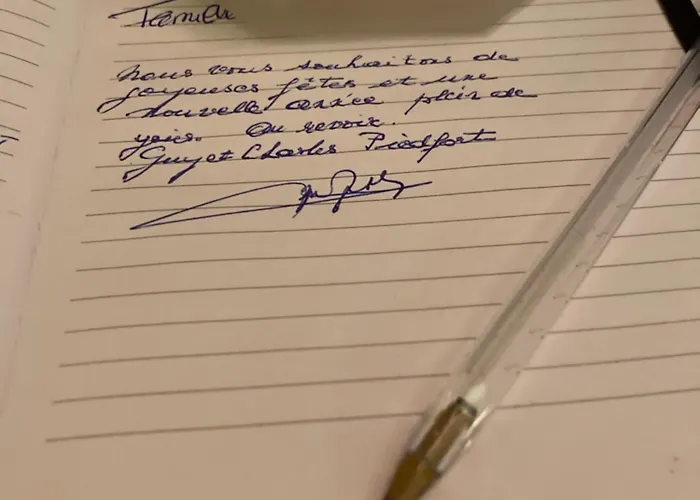 nous vous souhaitons de
joyeuses fêtes et une
nouvelle année plein de
yoie. Au revoir.
Guy et Charles Piedfort